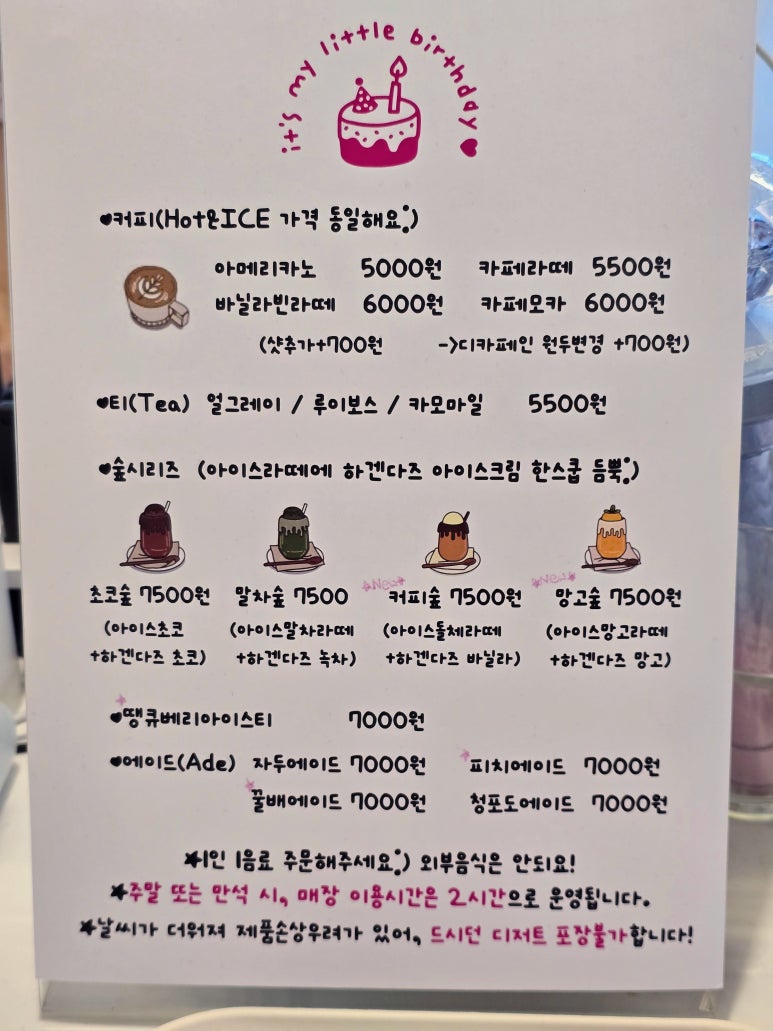 it's my little birthday♥
♥커피(Hot&ICE 가격 동일해요:)
아메리카노 5000원 카페라떼 5500원
바닐라빈라떼 6000원 카페모카 6000원
(샷추가+700원 ->디카페인 원두변경 +700원)
♥티(Tea) 얼그레이 / 루이보스 / 카모마일 5500원
♥숲시리즈 (아이스라떼에 하겐다즈 아이스크림 한스쿱 듬뿍:)
초코숲 7500원 말차숲 7500 *New* 커피숲 7500원 *New* 망고숲 7500원
(아이스초코 (아이스말차라떼 (아이스돌체라떼 (아이스망고라떼
+하겐다즈 초코) +하겐다즈 녹차) +하겐다즈 바닐라) +하겐다즈 망고)
♥땡큐베리아이스티 7000원
♥에이드(Ade) 자두에이드 7000원 피치에이드 7000원
꿀배에이드 7000원 청포도에이드 7000원
★1인 1음료 주문해주세요:) 외부음식은 안되요!
★주말 또는 만석 시, 매장 이용시간은 2시간으로 운영됩니다.
★날씨가 더워져 제품손상우려가 있어, 드시던 디저트 포장불가합니다!